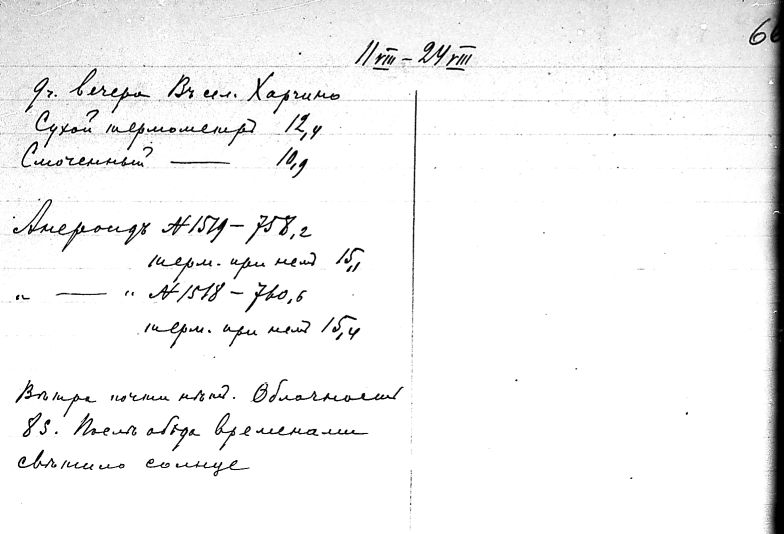 11 VIII – 24 VIII
9 ч. вечера Въ сел. Харчино
Сухой термометръ 12,4
Смоченный — 10,9
Анероидъ № 1519 – 758,2
терм. при немъ 15,1
„ — „ № 1518 – 760,6
терм. при немъ 15,4
Вѣтра почти нѣтъ. Облачность
8 S. Послѣ обѣда временами
свѣтило солнце